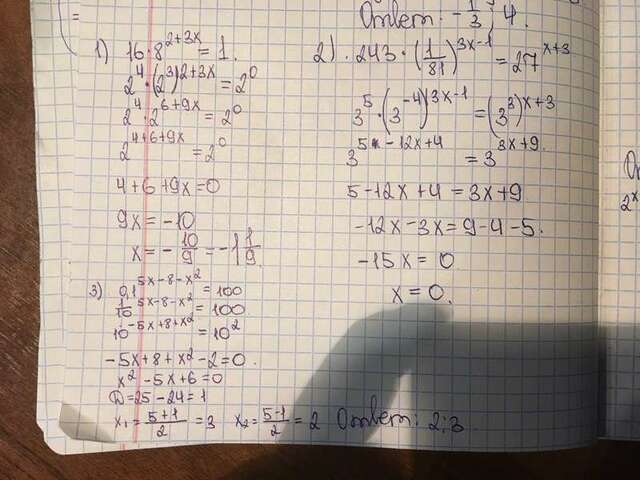 1) 16·8^(2+3x) = 1.
2^4·(2^3)^(2+3x) = 2^0
2^4·2^(6+9x) = 2^0
2^(4+6+9x) = 2^0
4+6+9x=0
9x = -10
x = -10/9 = -1 1/9.
3) 0,1^(5x-8-x^2) = 100
1/10^(5x-8-x^2) = 100
10^(-5x+8+x^2) = 10^2
-5x+8+x^2-2=0.
x^2-5x+6=0
D=25-24=1
x1 = (5+1)/2 = 3 x2 = (5-1)/2 = 2 Ответ: 2;3.
Ответ: -1/3; 4.
2) 243·(1/81)^(3x-1) = 27^(x+3)
3^5·(3^-4)^(3x-1) = (3^3)^(x+3)
3^(5-12x+4) = 3^(3x+9).
5-12x+4=3x+9
-12x-3x=9-4-5.
-15x=0
x=0.